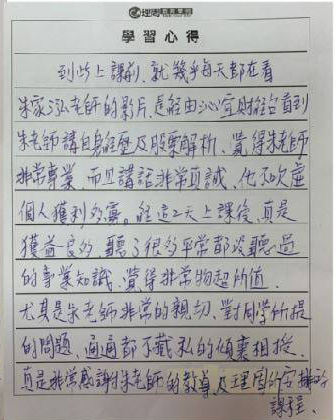 理周教育學苑
學習心得
到此上課前,就幾乎每天都在看
朱家泓老師的影片,是經由沁宜財經台看到
朱老師講自身經歷及股票解析,覺得朱老師
非常專業,而且講話非常真誠,也不吹噓
個人獲利多寡。經這2天上課後,真是
獲益良多,聽了很多平常都沒聽過
的專業知識,覺得非常物超所值,
尤其是朱老師非常的親切,對同學所提
的問題,通通都不藏私的傾囊相授,
真是非常感謝朱老師的教導及理周所安排的
課程。